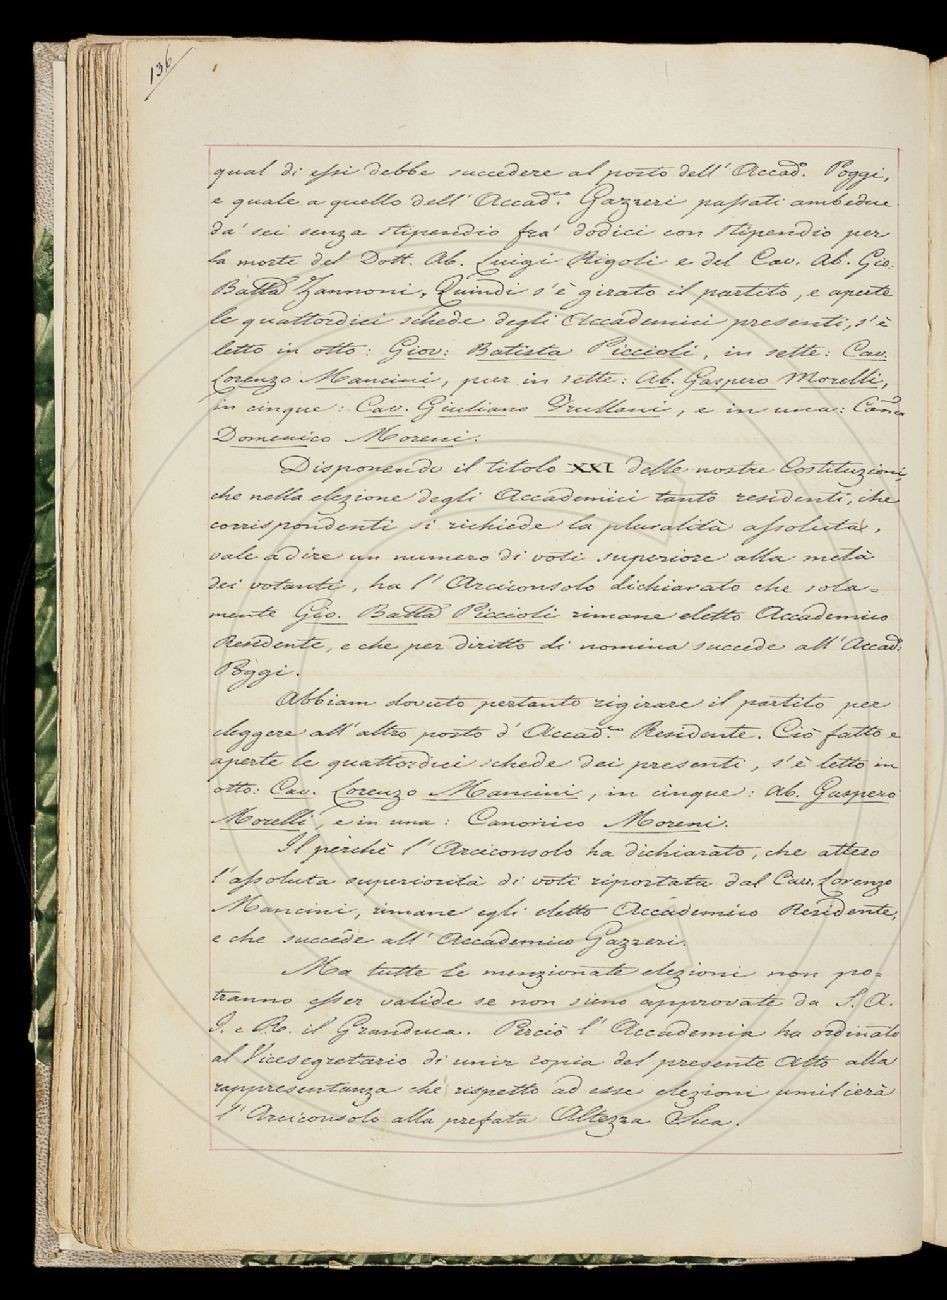 136
qual di essi debbe succedere al posto dell' Accad.o Poggi,
e quale a quello dell' Accad.co Gazzeri passati ambedue
da' sei senza stipendio fra' dodici con stipendio per
la morte del Dott. Ab. Luigi Rigoli e del Cav. Ab. Gio:
Batta Zannoni. Quindi s'è girato il partito, e aperte
le quattordici schede degli Accademici presenti, s'è
letto in otto: Giov: Batista Piccioli, in sette: Cav.
Lorenzo Mancini, pur in sette: Ab. Gaspero Morelli,
in cinque: Cav. Giuliano Frullani, e in una: Canco
Domenico Moreni.
Disponendo il titolo XXI delle nostre Costituzioni,
che nella elezione degli Accademici tanto residenti, che
corrispondenti si richiede la pluralità assoluta,
vale a dire un numero di voti superiore alla metà
dei votanti, ha l' Arciconsolo dichiarato che sola=
mente Gio. Batta Piccioli rimane eletto Accademico
Residente, e che per diritto di nomina succede all' Accad.o
Poggi.
Abbiam dovuto pertanto rigirare il partito per
eleggere all' altro posto d' Accad.co Residente. Ciò fatto e
aperte le quattordici schede dei presenti, s'è letto in
otto: Cav. Lorenzo Mancini, in cinque: Ab. Gaspero
Morelli, e in una: Canonico Moreni.
Il perchè l' Arciconsolo ha dichiarato, che atteso
l'assoluta superiorità di voti riportata dal Cav. Lorenzo
Mancini, rimane egli eletto Accademico Residente,
e che succede all' Accademico Gazzeri.
Ma tutte le menzionate elezioni non po=
tranno esser valide se non sieno approvate da S. A.
I. e R. il Granduca. Perciò l' Accademia ha ordinato
al Vicesegretario di unir copia del presente Atto alla
rappresentanza che rispetto ad esse elezioni umilierà
l' Arciconsolo alla prefata Altezza Sua.